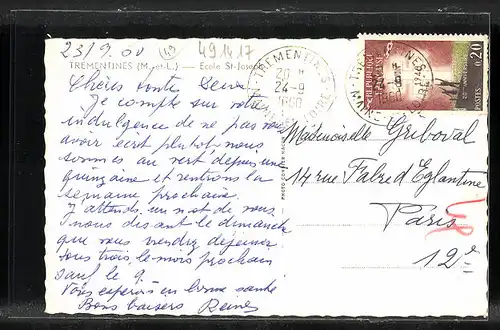 23/9.60
49.14.17
TREMENTINES (M.-et-L.) — École St-Joseph
Chères toute
Je compte sur votre
indulgence de ne pas vous
avoir écrit plutôt nous
sommes au vert depuis une
quinzaine et rentrons la
semaine prochaine.
J'attends un mot de vous
nous disant le dimanche
que vous viendrez déjeuner
tous trois le mois prochain
sauf le 9.
Vous espérons en bonne santé
Bons baisers
TREMENTINES
24-9
1960
MAINE-ET-LOIRE
REPUBLIQUE
FRANÇAISE
0,20
POSTES
Mademoiselle Greboval
14 rue Fabre d'Eglantine
Paris
12e